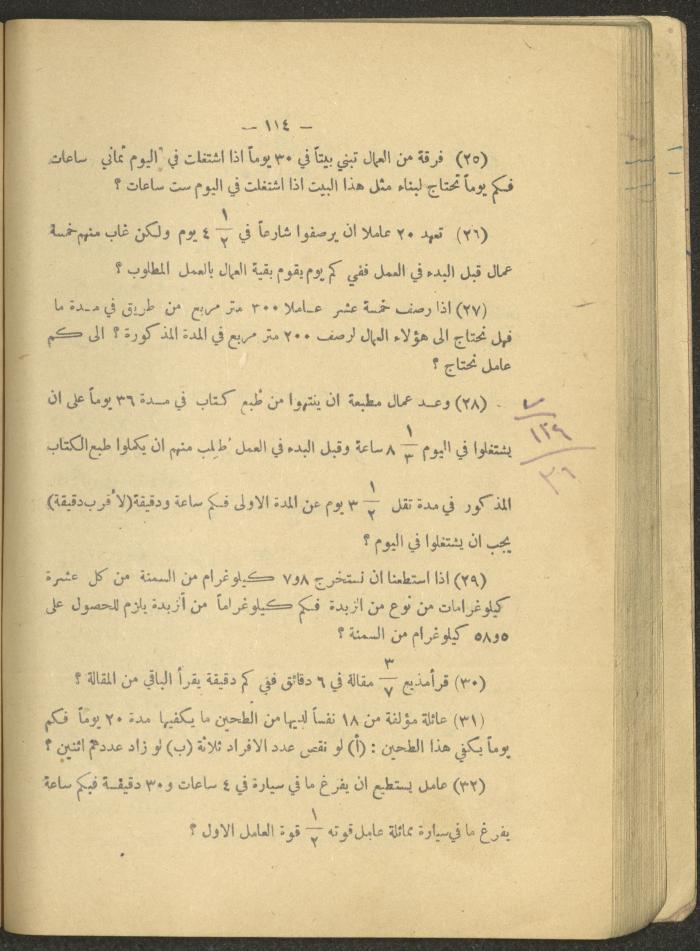 — ١١٤ —
(٢٥) فرقة من العمال تبني بيتاً في ٣٠ يوماً اذا اشتغلت في اليوم ثماني ساعات
فكم يوماً تحتاج لبناء مثل هذا البيت اذا اشتغلت في اليوم ست ساعات ؟
(٢٦) تعهد ٢٠ عاملا ان يرصفوا شارعاً في ١/٢ ٤ يوم ولكن غاب منهم خمسة
عمال قبل البدء في العمل ففي كم يوم يقوم بقية العمال بالعمل المطلوب ؟
(٢٧) اذا رصف خمسة عشر عاملا ٣٠٠ متر مربع من طريق في مدة ما
فهل نحتاج الى هؤلاء العمال لرصف ٢٠٠ متر مربع في المدة المذكورة ؟ الى كم
عامل نحتاج ؟
(٢٨) وعد عمال مطبعة ان ينتهوا من طبع كتاب في مدة ٣٦ يوماً على ان
يشتغلوا في اليوم ١/٣ ٨ ساعة وقبل البدء في العمل طلب منهم ان يكملوا طبع الكتاب
المذكور في مدة تقل ١/٢ ٣ يوم عن المدة الاولى فكم ساعة ودقيقة (لأقرب دقيقة)
يجب ان يشتغلوا في اليوم ؟
(٢٩) اذا استطعنا ان نستخرج ٨و٧ كيلوغرام من السمنة من كل عشرة
كيلوغرامات من نوع من الزبدة فكم كيلوغراماً من الزبدة يلزم للحصول على
٥و٥٨ كيلوغرام من السمنة ؟
(٣٠) قرأ مذيع ٣/٧ مقالة في ٦ دقائق ففي كم دقيقة يقرأ الباقي من المقالة ؟
(٣١) عائلة مؤلفة من ١٨ نفساً لديها من الطحين ما يكفيها مدة ٢٠ يوماً فكم
يوماً يكفي هذا الطحين : (أ) لو نقص عدد الافراد ثلاثة (ب) لو زاد عددهم اثنين ؟
(٣٢) عامل يستطيع ان يفرغ ما في سيارة في ٤ ساعات و ٣٠ دقيقة فبكم ساعة
يفرغ ما في سيارة مماثلة عامل قوته ١/٢ قوة العامل الاول ؟